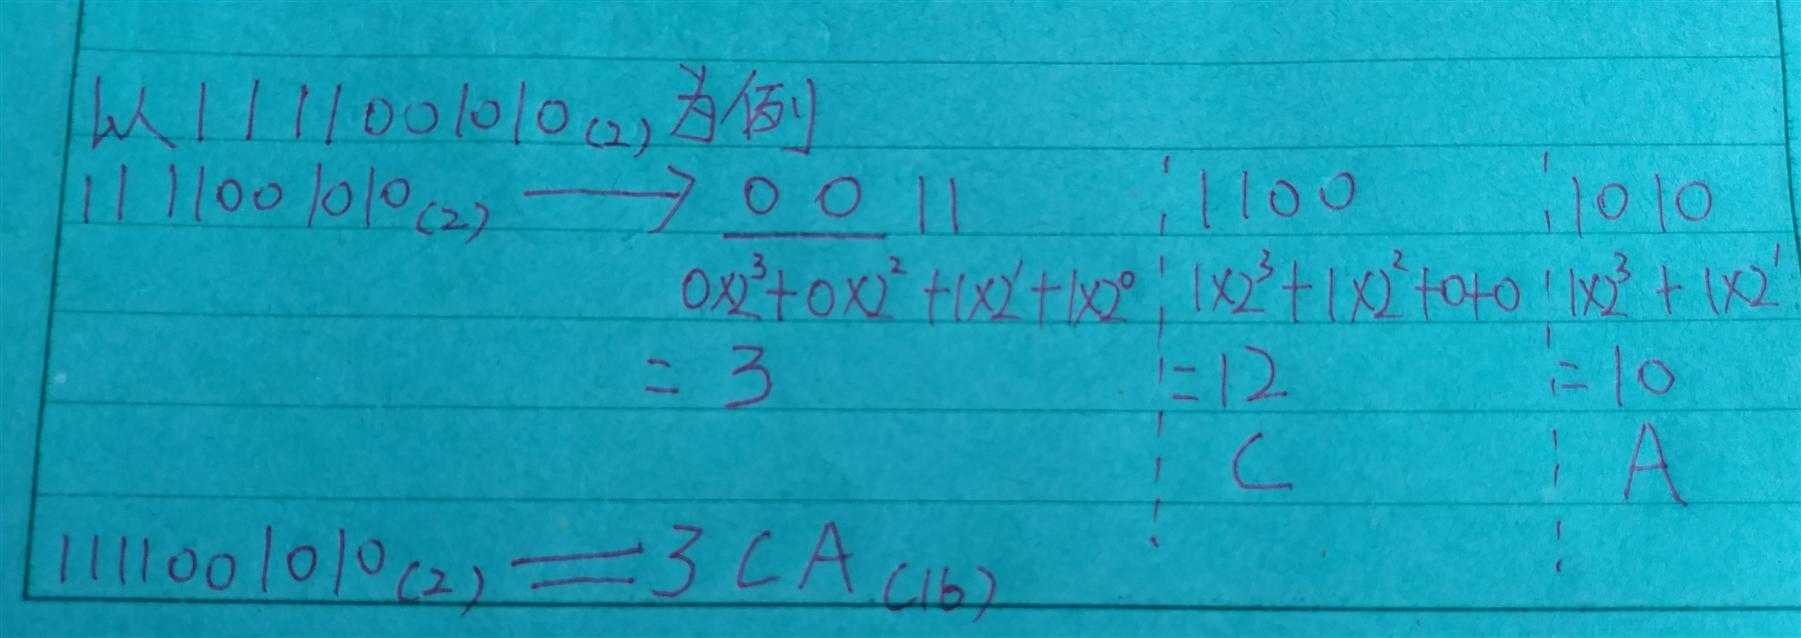 以1111001010(2)为例
1111001010(2) → 0011 ¦ 1100 ¦ 1010
0×2³+0×2²+1×2¹+1×2⁰ ¦ 1×2³+1×2²+0+0 ¦ 1×2³+1×2¹
=3 ¦ =12 ¦ =10
C ¦ A
1111001010(2) = 3CA(16)